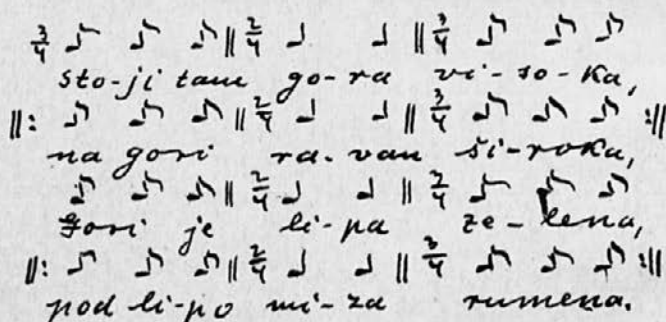 3/4 ♪ ♪ ♪ || 2/4 ♩ ♩ || 3/4 ♪ ♪ ♪
sto-ji tam go-ra vi-so-ka,
||: ♪ ♪ ♪ || 2/4 ♩ ♩ || 3/4 ♪ ♪ ♪ :||
na gori ra-van ši-roka,
♪ ♪ ♪ || 2/4 ♩ ♩ || 3/4 ♪ ♪ ♪
Gori je li-pa ze-lena,
||: ♪ ♪ ♪ || 2/4 ♩ ♩ || 3/4 ♪ ♪ ♪ :||
pod li-po mi-za rumena.